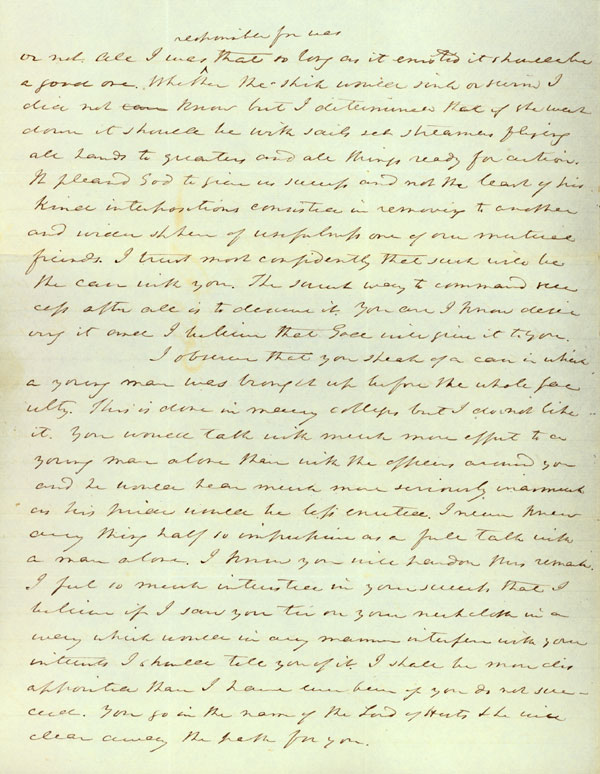 responsible for was
or not. All I was that so long as it existed it should be
a good one. Whether the ship would sink or swim I
did not know but I determined that if she went
down it should be with sails set streamers flying
all hands to quarters and all things ready for action.
It pleased God to give us success and not the least of his
kind interpositions consisted in removing to another
and wider sphere of usefulness one of our mutual
friends. I trust most confidently that such will be
the case with you. The surest way to command suc
cess after all is to deserve it. You are I know deser
ving it and I believe that God will give it to you.
I observe that you speak of a case in which
a young man was brought up before the whole fac
ulty. This is done in many colleges but I do not like
it. You would talk with much more effect to a
young man alone than with the officers around you
and he would hear much more seriously inasmuch
as his pride would be less excited. I never knew
any thing half so impressive as a full talk with
a man alone. I know you will pardon this remark.
I feel so much interested in your success that I
believe if I saw you tie on your neckcloth in a
way which would in any manner interfere with your
interests I should tell you of it. I shall be more dis
appointed than I have ever been if you do not suc-
ceed. You go in the name of the Lord of Hosts & he will
clear away the path for you.